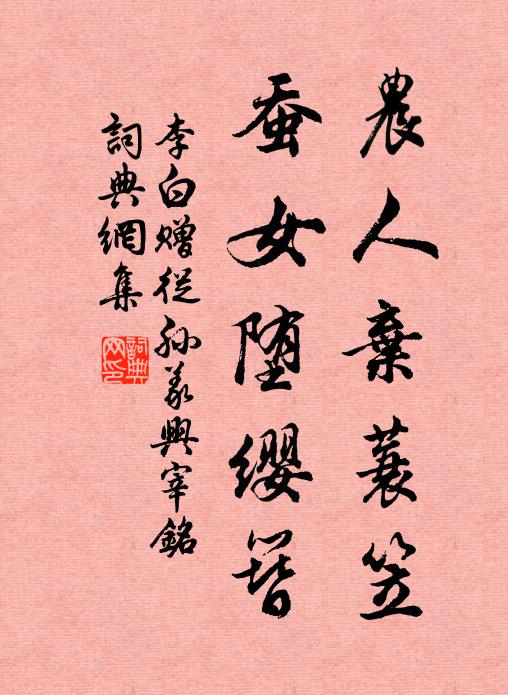 農人棄蓑笠
蚕女堕纓簪
李白赠從孙義興宰銘
詞典網集
詞典網印